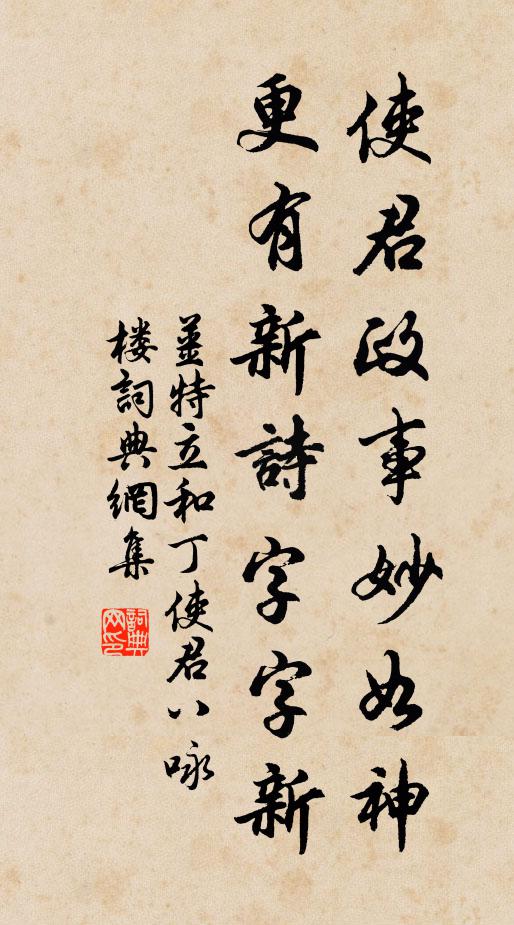 使君政事妙如神
更有新詩字字新
姜特立和丁使君八咏
楼詞典網集
詞典网印